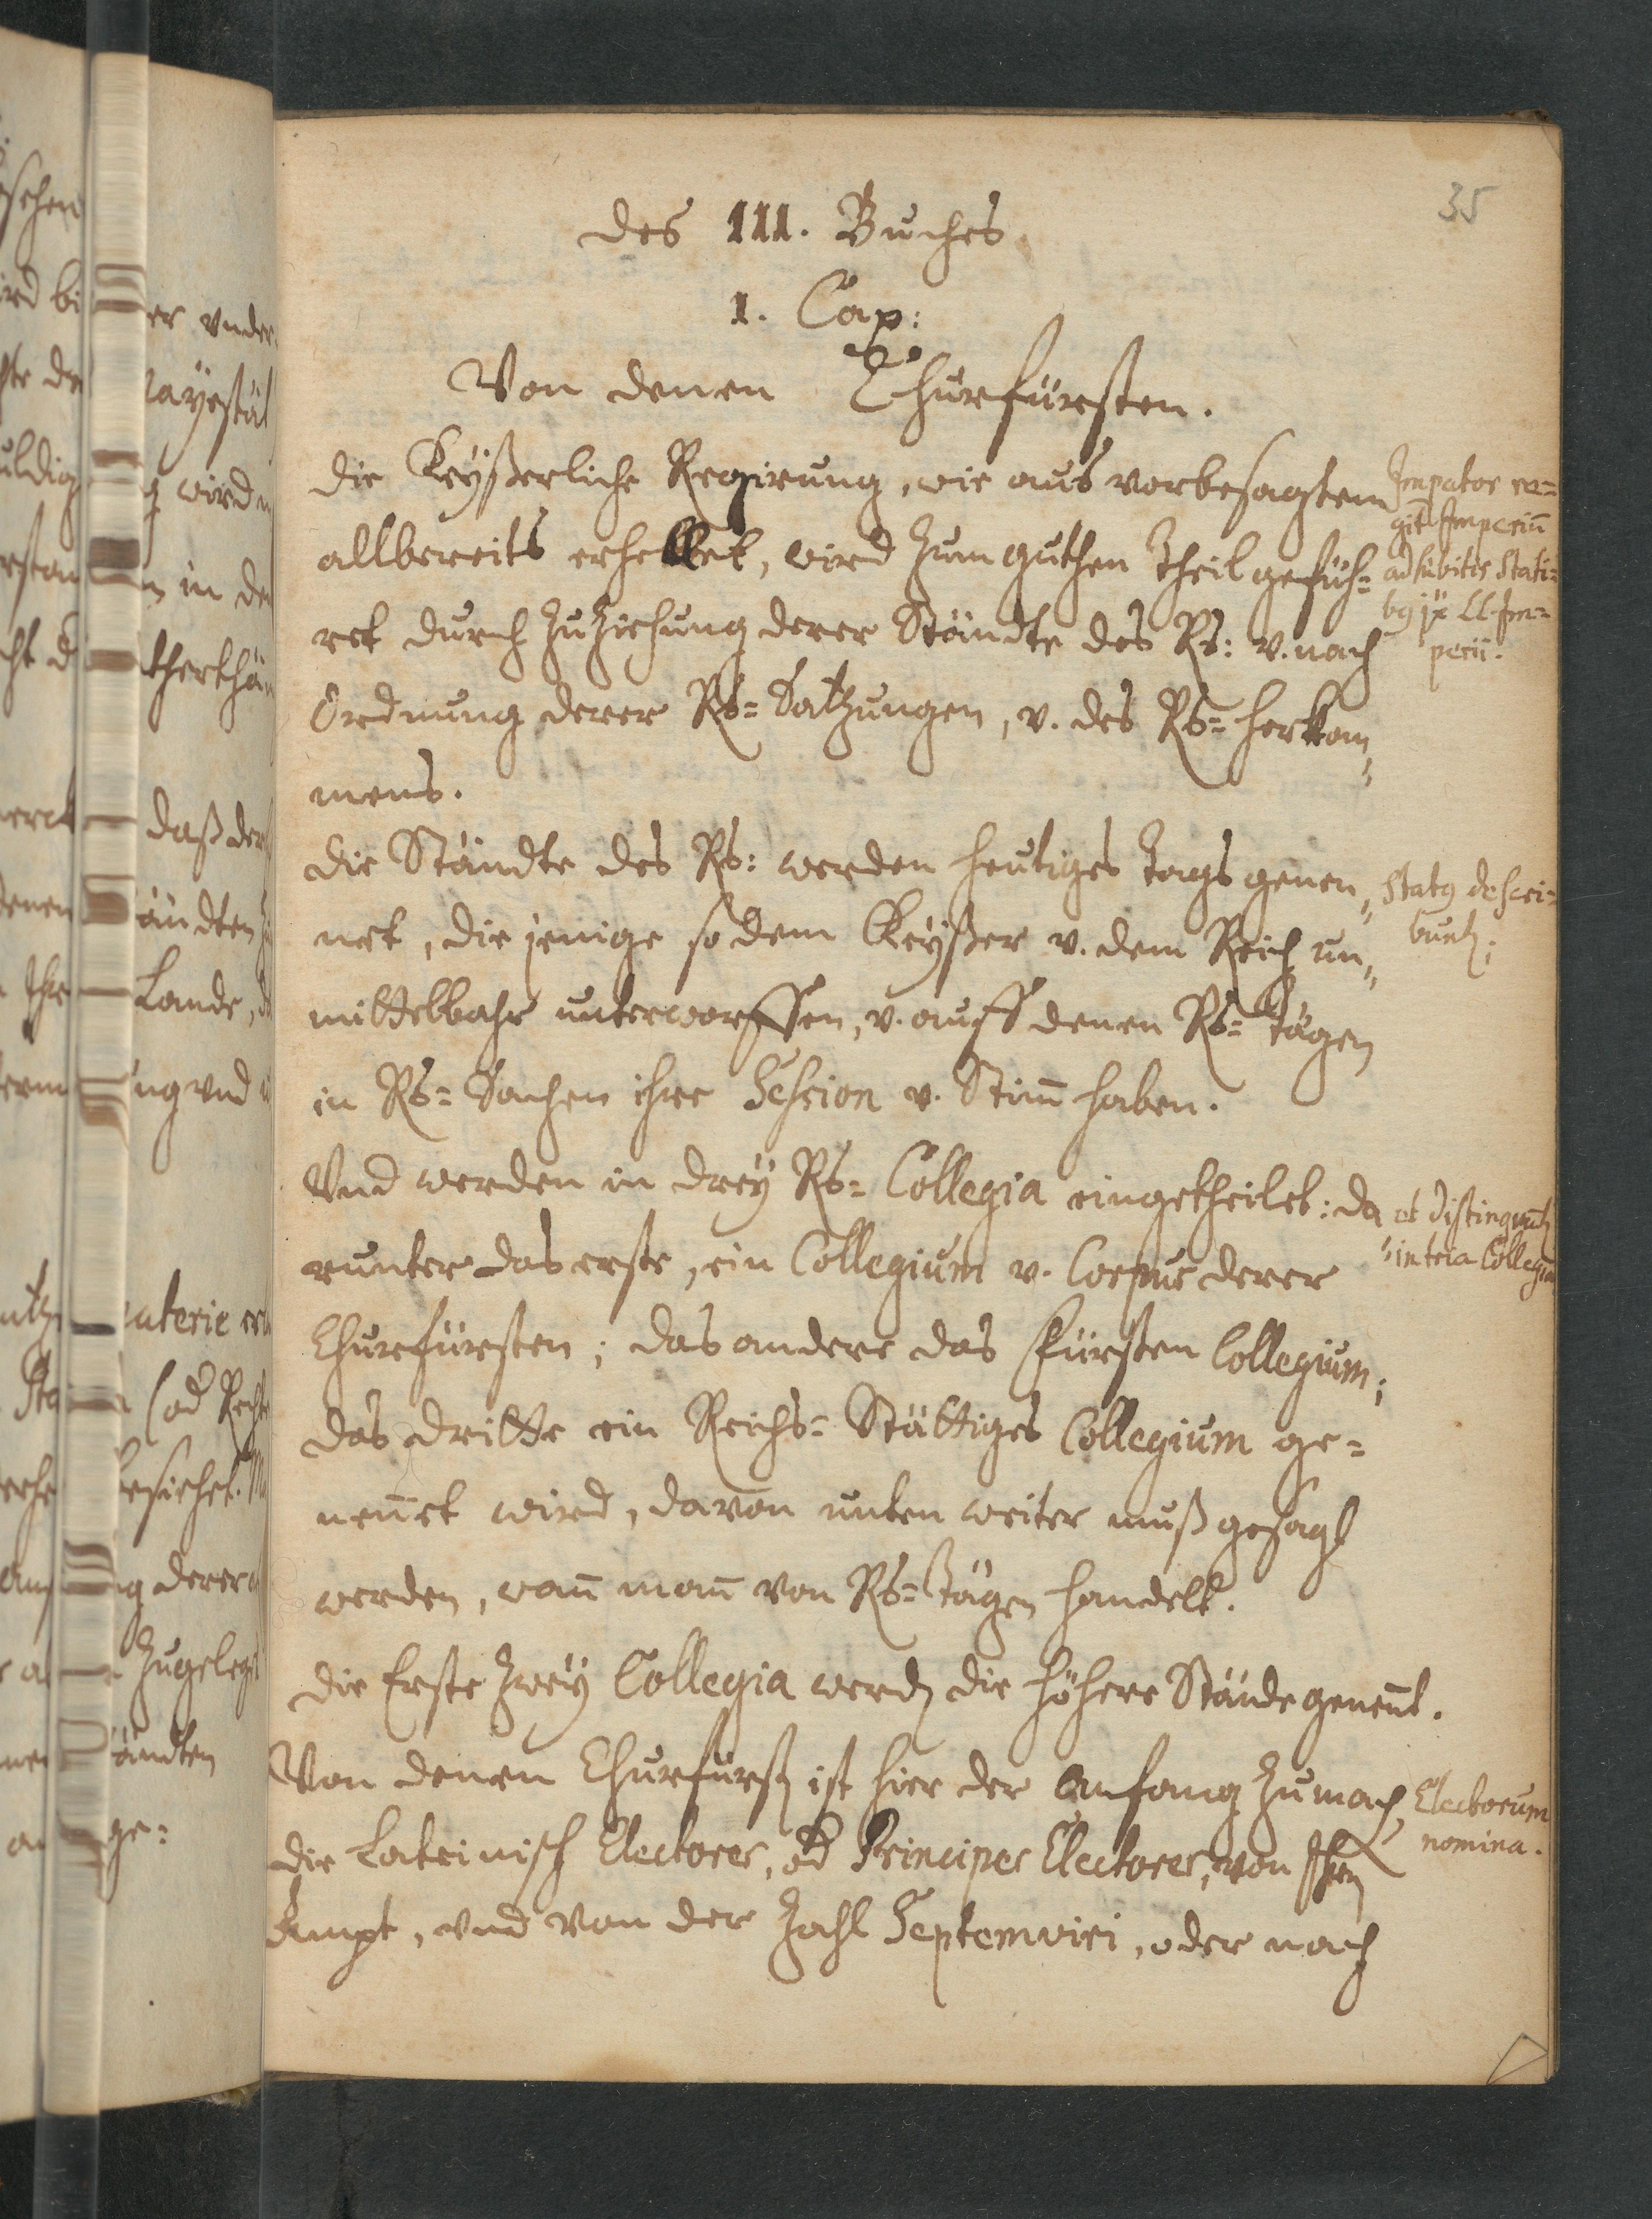 35
des III. Buches
1. Cap:
Von denen Churfürsten.
Die Keyßerliche Regirung, wie aus vorbesagtem
allbereits erhellet, wird zum guthen Theil gefüh=
ret durch zuziehung derer Ständte des Rs: v. nach
Ordnung derer Rs= Satzungen, v. des Rs= herkom„
mens.
Impator re=
git Imperiū
adhibitis Stati=
bȝ jx LL Im=
perii.
Die Ständte des Rs: werden heutiges Tags genen„
net, die jenige so dem Keyßer v. dem Reich un„
mittelbahr unterworffen, v. auff denen Rs= Tägen
in Rs= Sachen ihre Session v. Stim̄ haben.
Statȝ descri=
bunt.
Vnd werden in drey Rs= Collegia eingetheilet: da
runter das erste, ein Collegium v. Corpus derer
Churfürsten; das andere das Fürsten Collegium;
das dritte ein Reichs= Stättiges Collegium ge=
nen̄et wird, davon unten weiter muß gesagt
werden, wan̄ man̄ von Rs= Tägen handelt.
et distinguunt
in tria Collegia
Die Erste zwey Collegia werden die höhere Stände genen̄t.
Von denen Churfürsten ist hier der Anfang zumachen,
die Lateinisch Electores, od Principes Electores, von Ihrem
Ampt, vnd von der Zahl Septemviri, oder nach
Electorum
nomina.